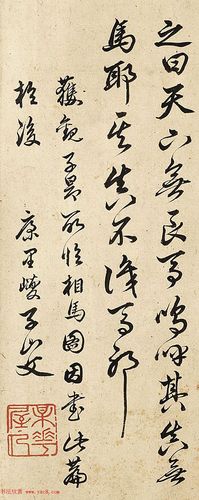 之曰天下無良馬嗚呼其真無
馬耶其真不識馬耶
獲觀子昂所臨相馬圖因書此篇
於後 康里巎子山父